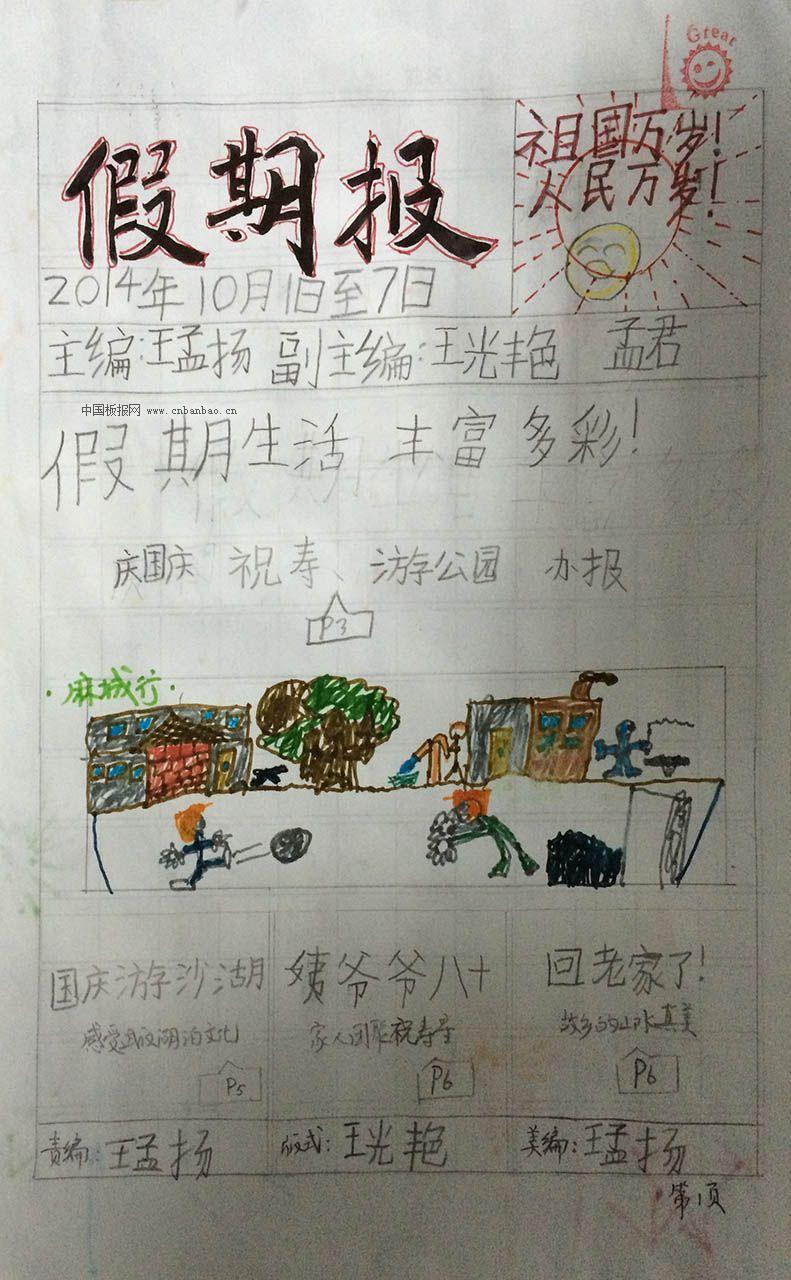 Great
祖国万岁!
人民万岁!
假期报
2014年10月1日至7日
主编:王孟扬 副主编:王光艳 孟君
中国板报网 www.cnbanbao.cn
假期生活 丰富多彩!
庆国庆 祝寿、游公园 办报
P3
·麻城行·
国庆游沙湖 姨爷爷八十 回老家了!
感受武汉湖泊文化 家人团聚祝寿星 故乡的山水真美
P5 P6 P6
责编:王孟扬 版式:王光艳 美编:王孟扬
第1页